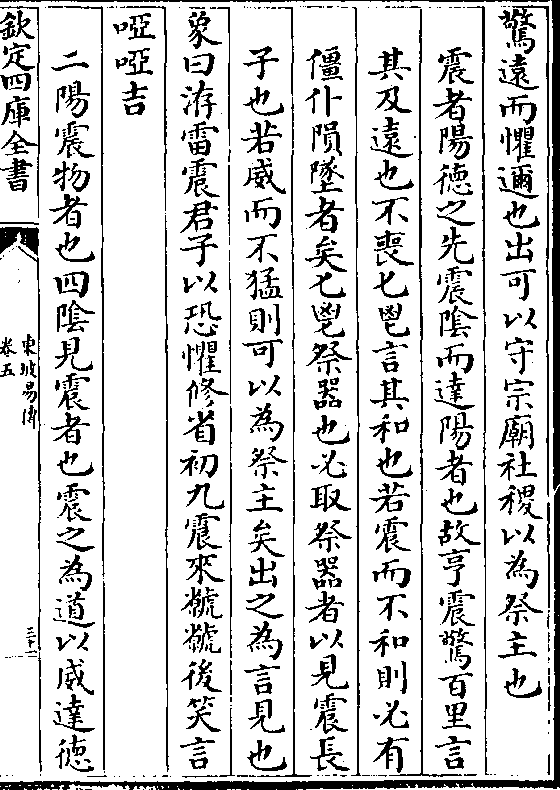 驚遠而懼邇也出可以守宗廟社稷以為祭主也
震者陽德之先震陰而達陽者也故亨震驚百里言
其及遠也不喪匕鬯言其和也若震而不和則必有
僵仆隕墜者矣匕鬯祭器也必取祭器者以見震長
子也若威而不猛則可以為祭主矣出之為言見也
象曰洊雷震君子以恐懼修省初九震來虩虩後笑言
啞啞吉
二陽震物者也四陰見震者也震之為道以威達德
欽定四庫全書
東坡易傳
卷五
三十二